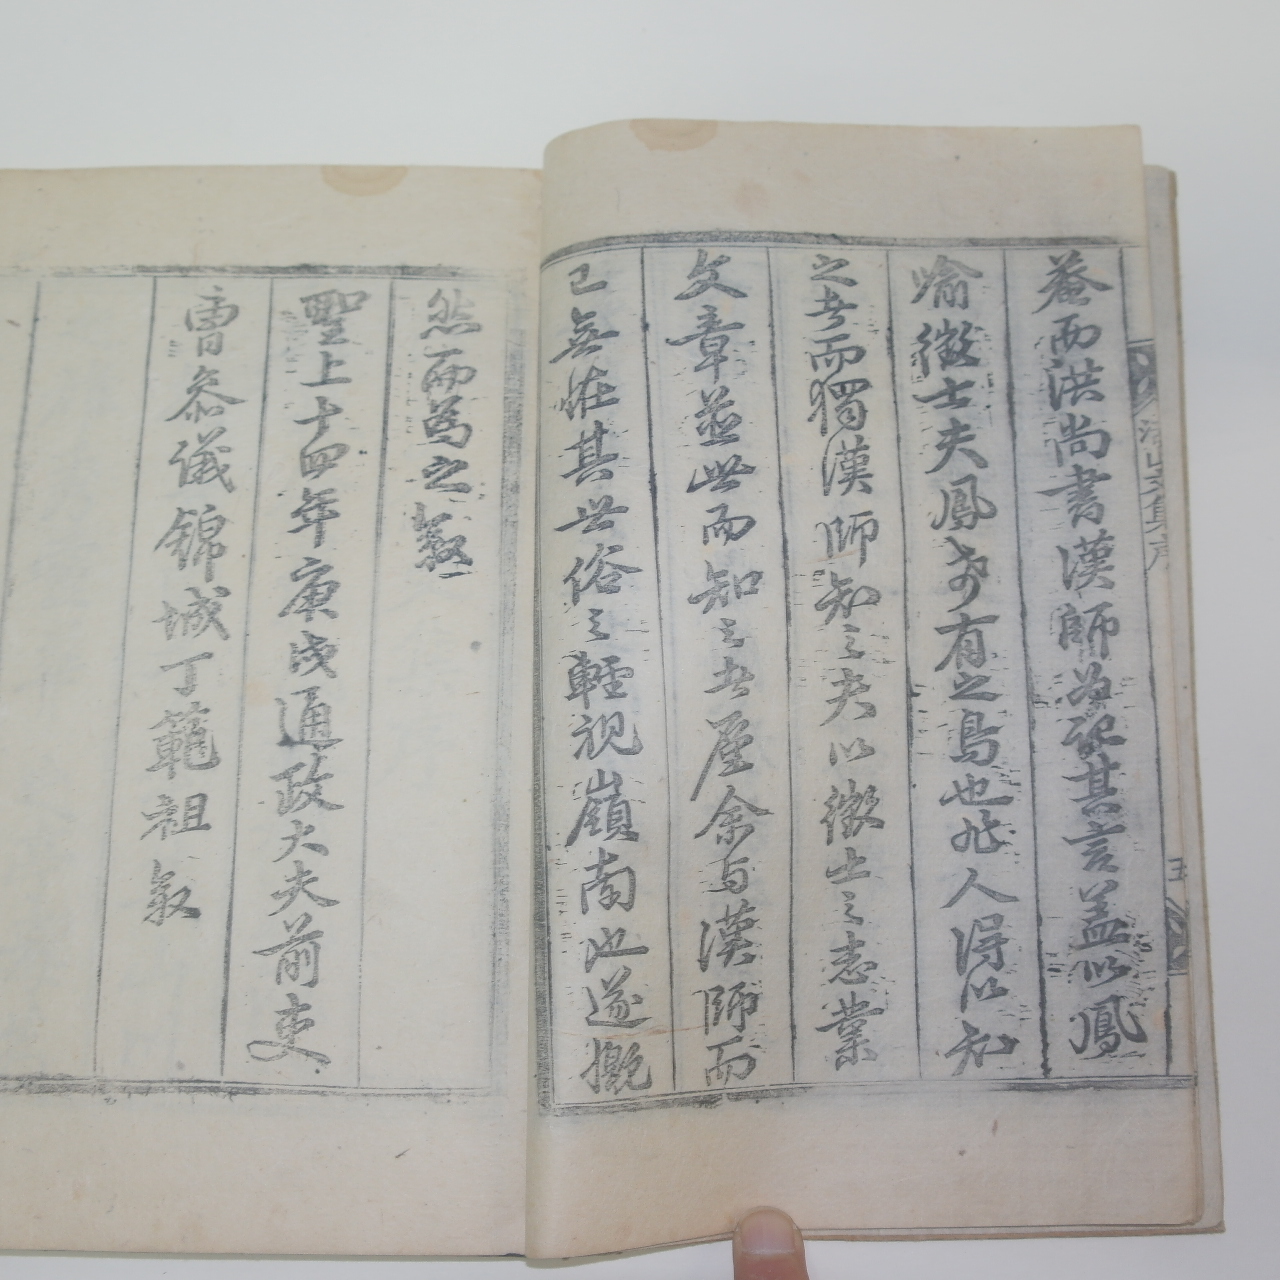 文集序
五
菴而洪尚書漢師為記其言盖以鳳
喻徵士夫鳳希有之鳥也非人得以知
之者而獨漢師知之夫以徵士之志業
文章並世而知之者廑余与漢師而
已無恠其世俗之輕視嶺南也遂慨
然而為之敘
聖上十四年庚戌通政大夫前吏
曹叅議錦城丁範祖敘